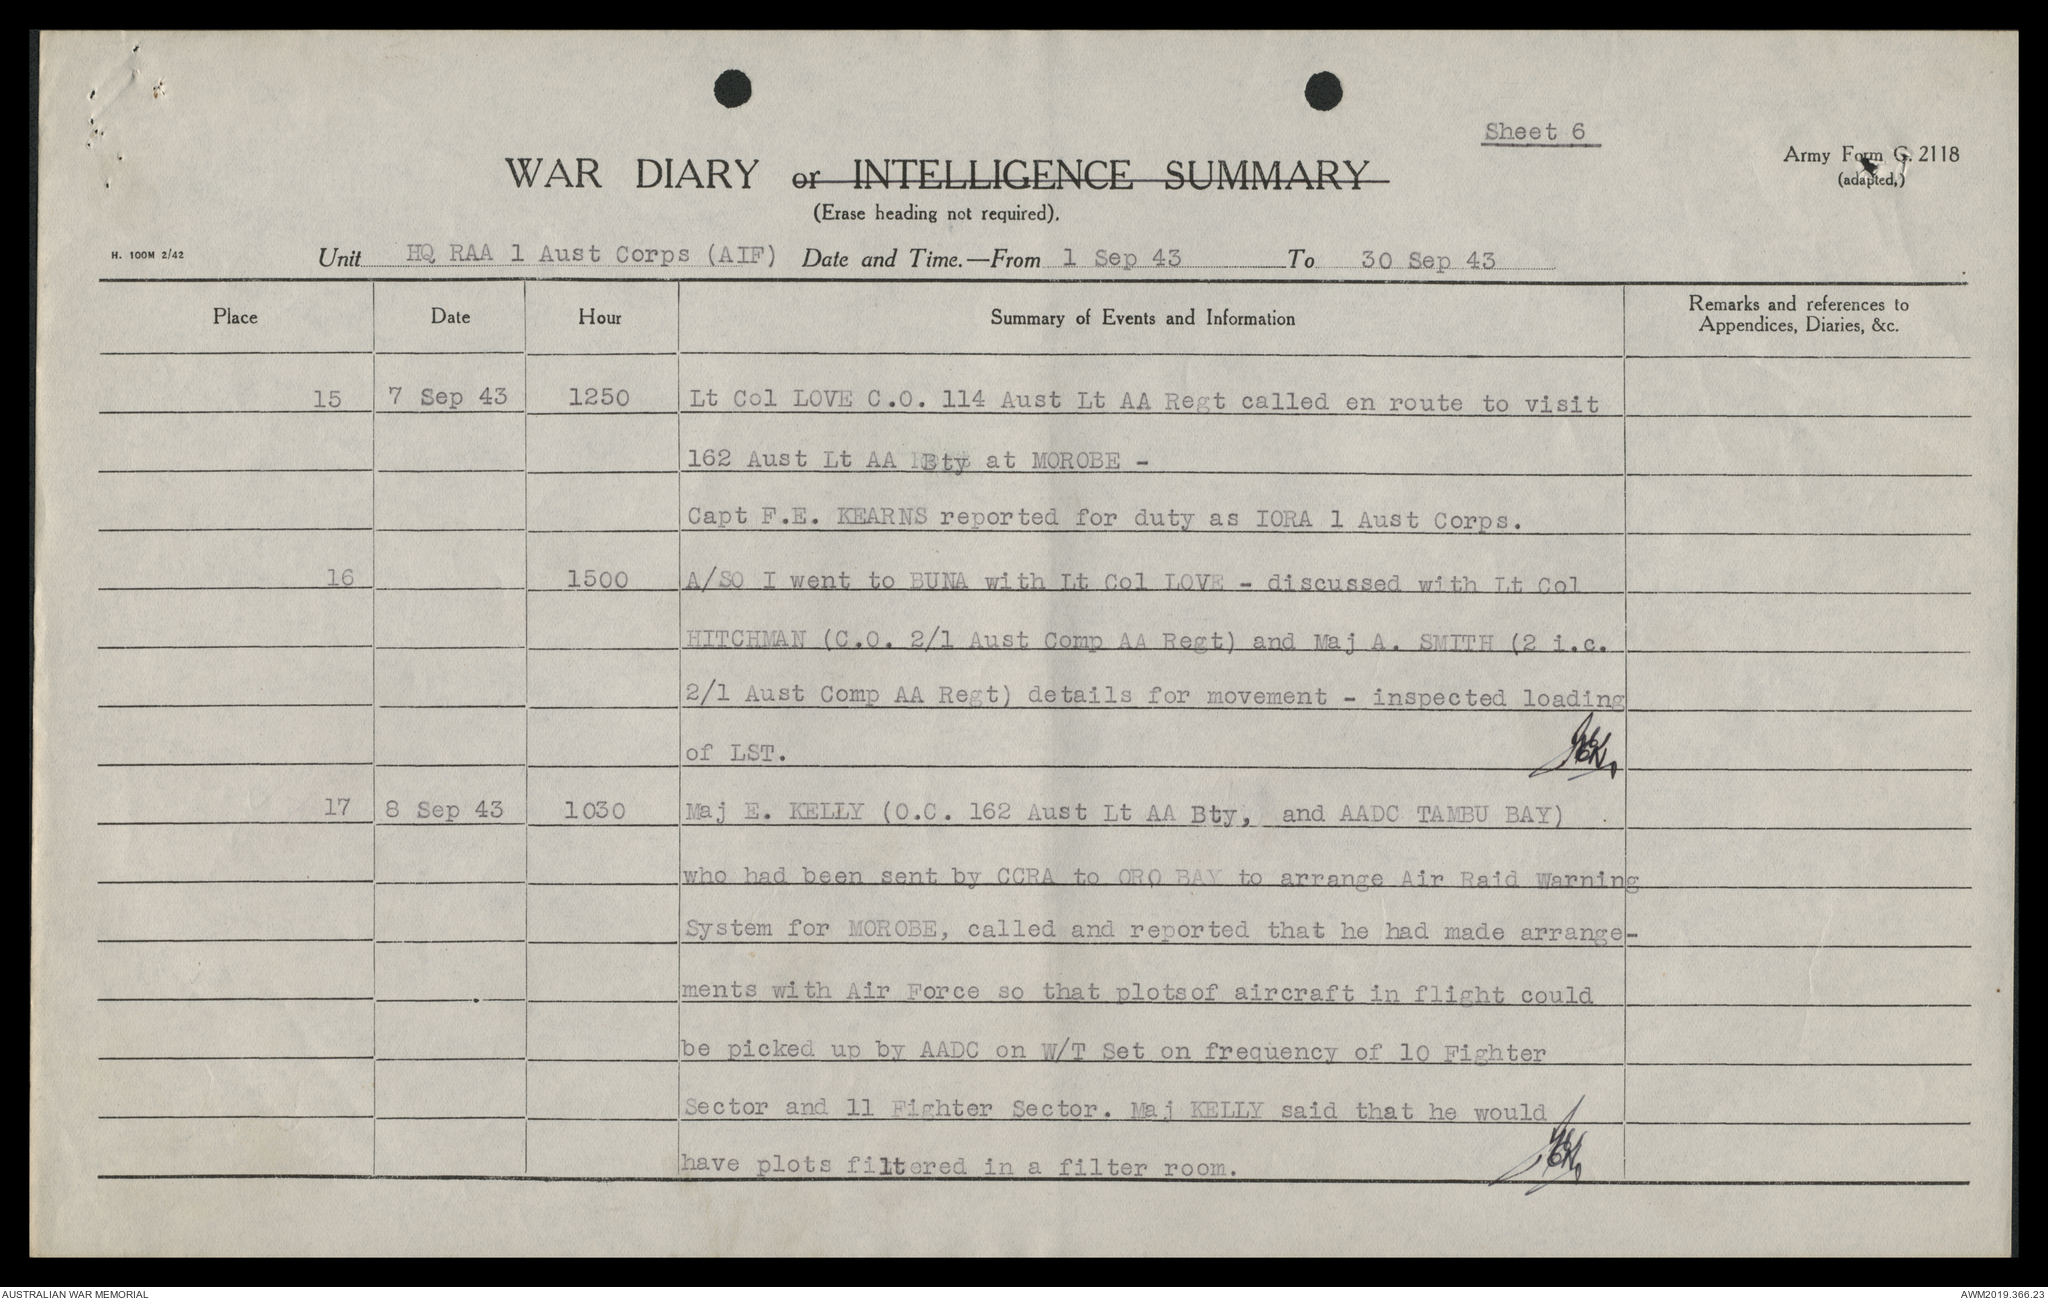 Sheet 6
Army Form G. 2118
(adapted,)
WAR DIARY or INTELLIGENCE SUMMARY
(Erase heading not required).
H. 100M 2/42
Unit HQ RAA 1 Aust Corps (AIF) Date and Time.—From 1 Sep 43 To 30 Sep 43
Place Date Hour Summary of Events and Information Remarks and references to
Appendices, Diaries, &c.
15 7 Sep 43 1250 Lt Col LOVE C.O. 114 Aust Lt AA Regt called en route to visit
162 Aust Lt AA Bty at MOROBE -
Capt F.E. KEARNS reported for duty as IORA 1 Aust Corps.
16 1500 A/SO I went to BUNA with Lt Col LOVE - discussed with Lt Col
HITCHMAN (C.O. 2/1 Aust Comp AA Regt) and Maj A. SMITH (2 i.c.
2/1 Aust Comp AA Regt) details for movement - inspected loading
of LST.
17 8 Sep 43 1030 Maj E. KELLY (O.C. 162 Aust Lt AA Bty, and AADC TAMBU BAY)
who had been sent by CCRA to ORO BAY to arrange Air Raid Warning
System for MOROBE, called and reported that he had made arrange-
ments with Air Force so that plotsof aircraft in flight could
be picked up by AADC on W/T Set on frequency of 10 Fighter
Sector and 11 Fighter Sector. Maj KELLY said that he would
have plots filtered in a filter room.
AUSTRALIAN WAR MEMORIAL
AWM2019.366.23